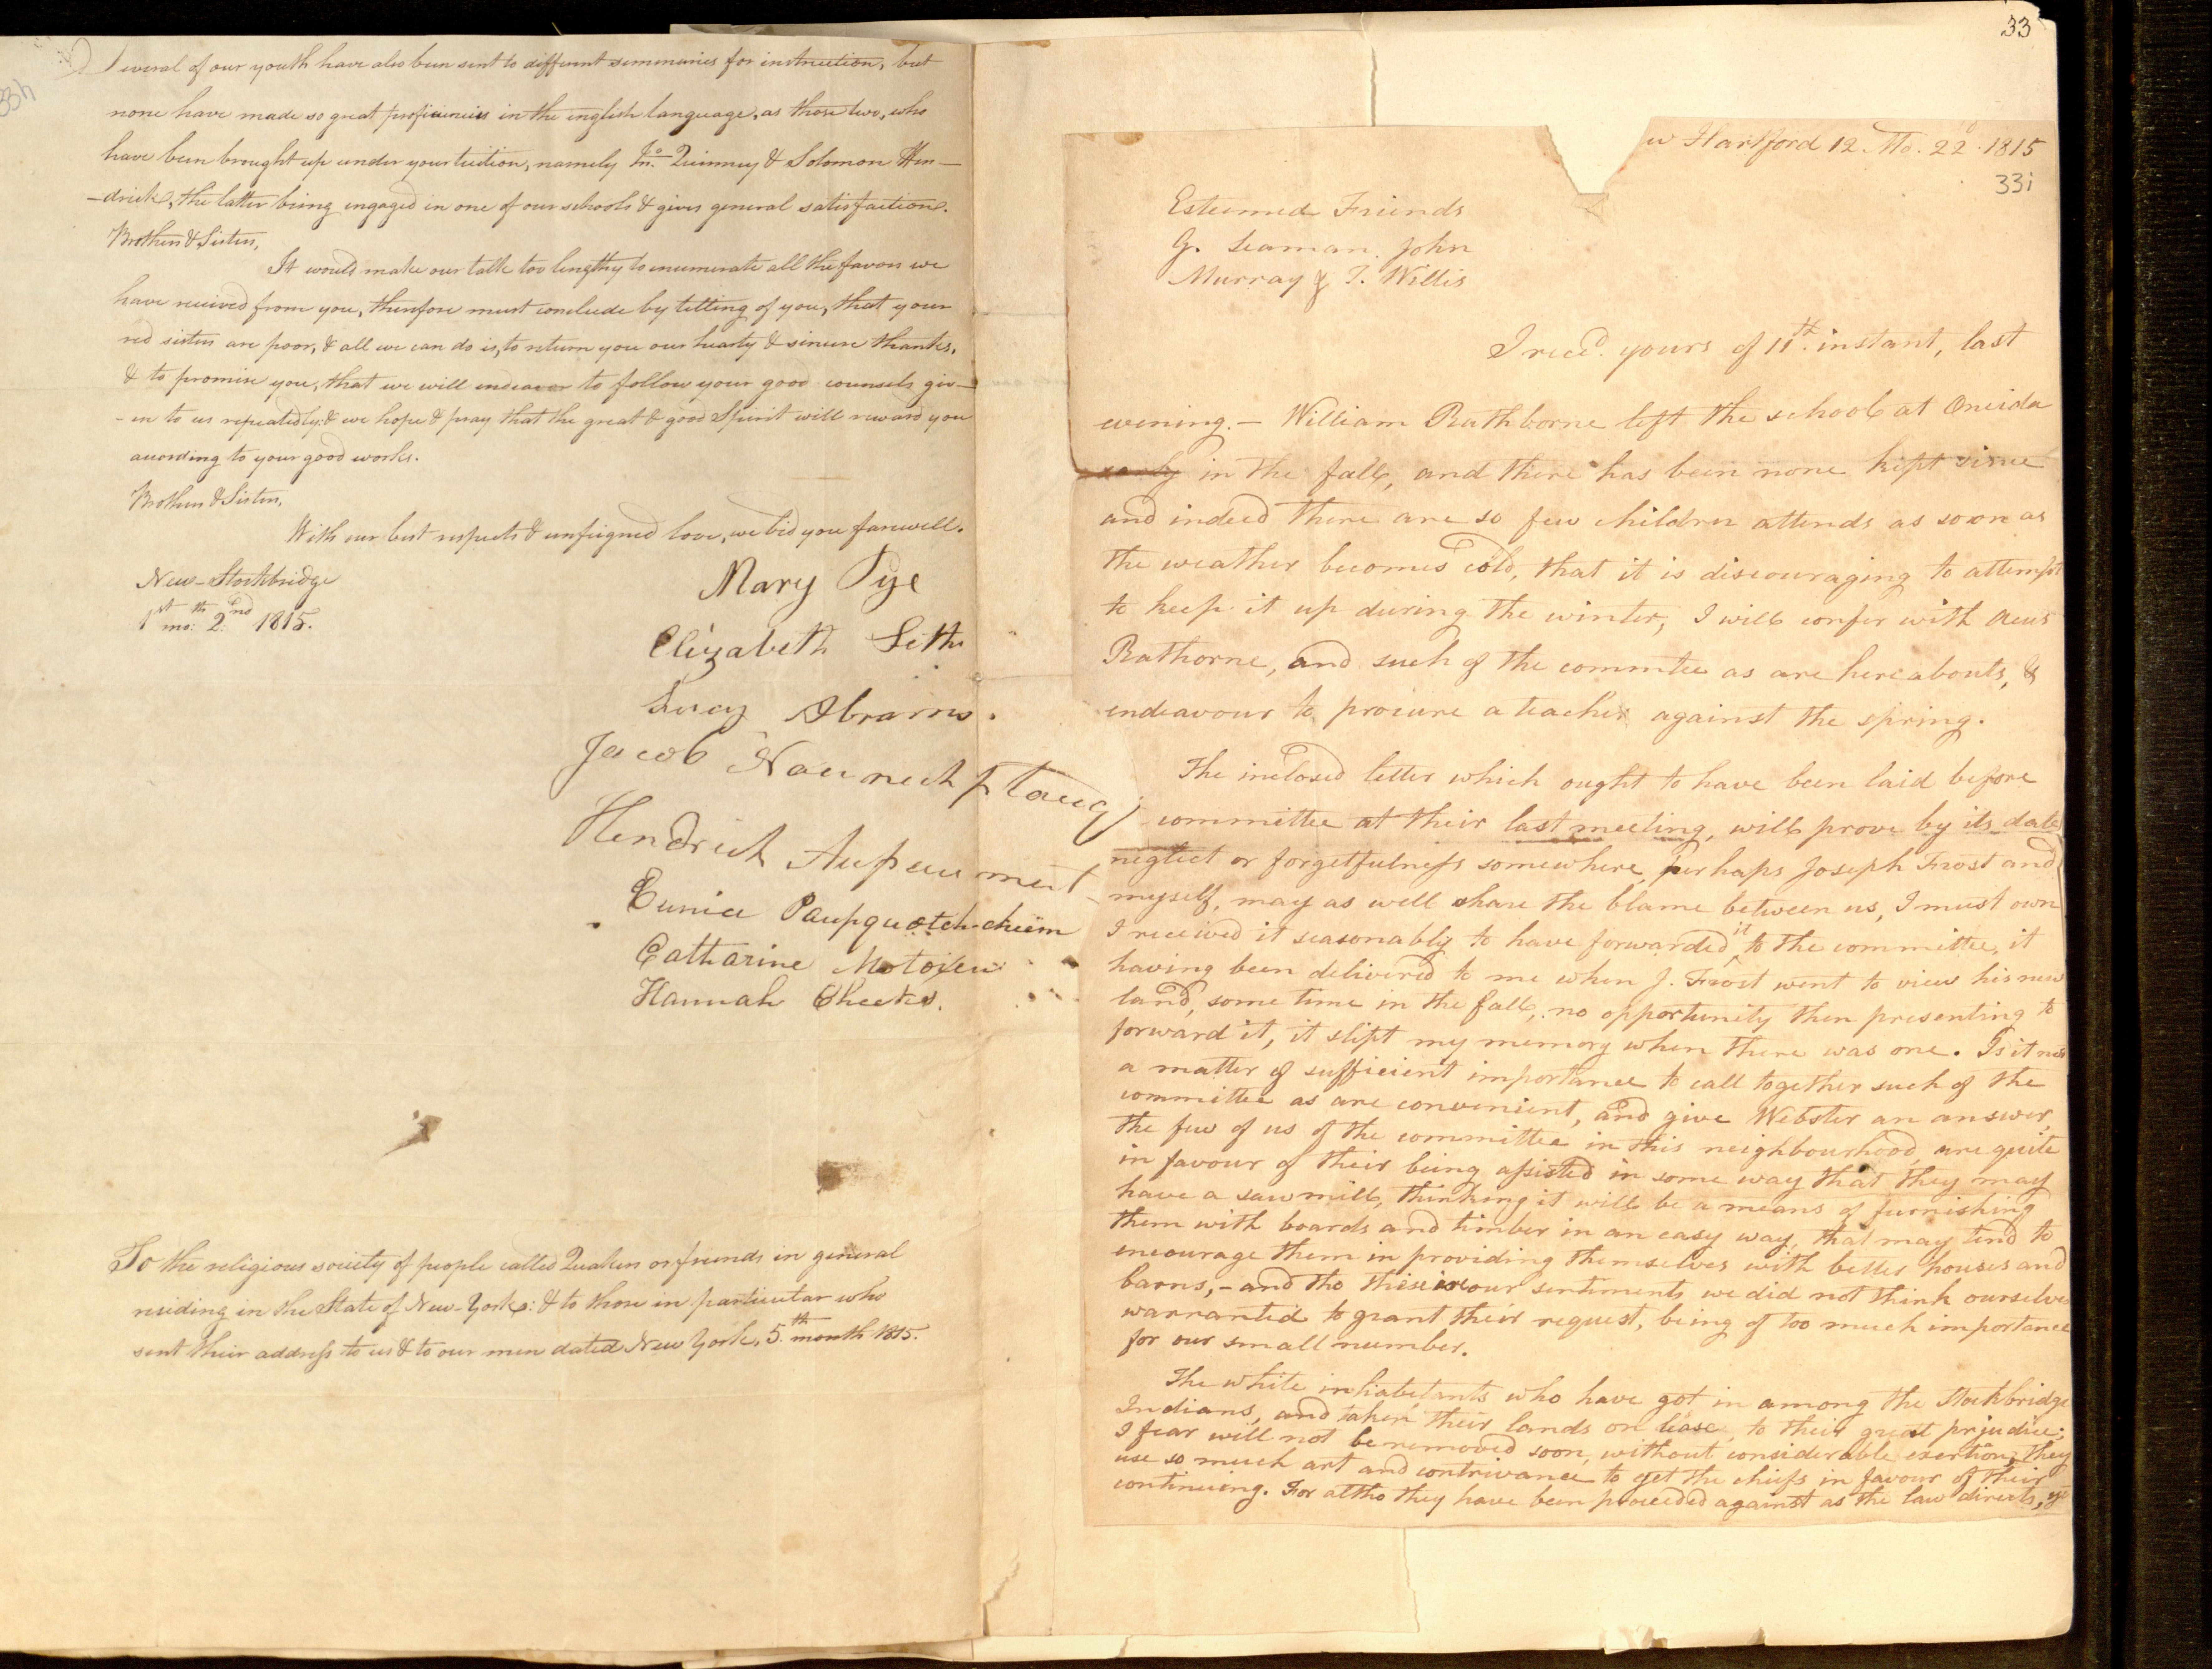 33h
Several of our youth have also been sent to different seminaries for instruction, but
none have made so great proficiencies in the english language, as those two, who
have been brought up under your tuition, namely Jno. Quinney & Solomon Hen-
-drick, the latter being engaged in one of our schools & gives general satisfaction.
Brothers & Sisters,
It would make our talk too lengthy to enumerate all the favors we
have received from you, therefore must conclude by telling of you, that your
red sisters are poor, & all we can do is, to return you our hearty & sincere thanks,
& to promise you, that we will endeavor to follow your good counsels giv-
-en to us repeatedly: & we hope & pray that the great & good Spirit will reward you
acording to your good works.
Brothers & Sisters,
With our best respects & unfeigned love, we bid you farewell.
New-Stockbridge
1st mo: 2nd 1815.
Mary Pye
Elizabeth Seth
Lucy Abrams.
Jacob
Hendrick Aupaumut
Eunice Paupquotch-cheem
Catharine
Hannah Cheeks.
To the religious society of people called Quakers or friends in general
residing in the State of New-York: & to those in particular who
sent their address to us & to our men dated New York, 5th month 1815.
33
w Hartford 12 Mo. 22d. 1815
33i
Esteemed Friends
G. Seaman, John
Murray & T. Willis
I recd. yours of 11th. instant, last
evening. — William Rathborne left the school at Oneida
early in the fall, and there has been none kept since
and indeed there are so few children attends as soon as
the weather becomes cold, that it is discouraging to attempt
to keep it up during the winter, I will confer with Acus
Rathorne, and such of the commitee as are hereabouts, &
endeavour to procure a teacher against the spring.
The inclosed letter which ought to have been laid before
committee at their last meeting, will prove by its date
neglect or forgetfulness somewhere, perhaps Joseph Frost and
myself, may as well share the blame between us, I must own
I received it seasonably to have forwarded it to the committee, it
having been delivered to me when J. Frost went to view his new
land, some time in the fall, no opportunity then presenting to
forward it, it slipt my memory when there was one. Is it not
a matter of sufficient importance to call together such of the
committee as are convenient, and give Webster an answer,
the few of us of the committee in this neighbourhood, are quite
in favour of their being assisted in some way that they may
have a saw mill, thinking it will be a means of furnishing
them with boards and timber in an easy way, that may tend to
encourage them in providing themselves with better houses and
barns, – and tho these are our sentiments we did not think ourselves
warranted to grant their request, being of too much importance
for our small number.
The white inhabetants who have got in among the Stockbridge
Indians, and taken their lands on lease, to their great prjudice;
I fear will not be removed soon, without considerable exertion, they
use so much art and contrivance to get the chiefs in favour of their
continuing. For altho they have been proceeded against as the law directs, yet